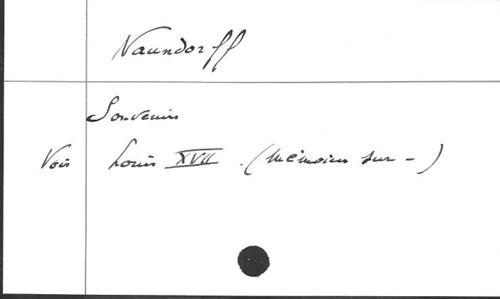 Naundorff
Souvenirs
Voir Louis XVII. (Mémoires sur -)